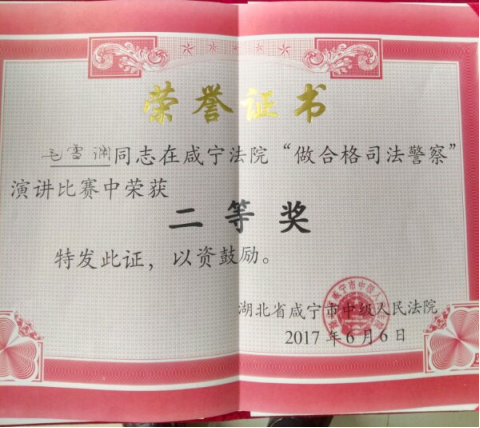 荣誉证书
毛雪澜同志在咸宁法院“做合格司法警察”
演讲比赛中荣获
二等奖
特发此证，以资鼓励。
湖北省咸宁市中级人民法院
2017年6月6日